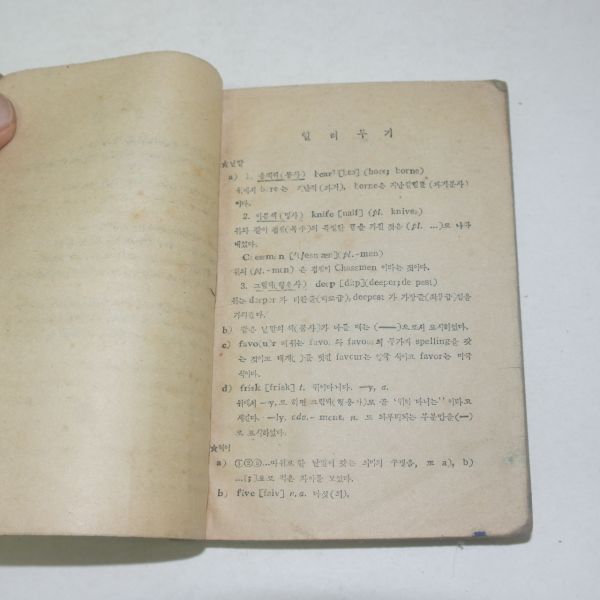 일 러 두 기
★낱말
a) 1. 움직씨(동사) bear² [bɛə] (bore; borne)
위에서 bore는 지난적(과거), borne은 지난길힘꼴(과거분사)
이다.
2. 이름씨(명사) knife [naif] (pl. knives)
위와 같이 겹셈(복수)의 특별한 꼴을 가진 것은 (pl. ...)로 나타
내었다.
(pl. -men)
위의 (pl. -men) 은 겹셈이 Chessmen 이라는 것이다.
3. 그림씨(형용사) deep [di:p] (deeper; deepest)
위는 deeper 가 deepest 가 가장급(최상급)임을
가리킨다.
b) 같은 낱말의 씨(품사)가 바뀔 때는 (——)으로서 표시하였다.
c) favo(u)r 이 위는 favor 와 favour의 두가지 spelling을 갖
는 것이고 대개( )를 favour는 영국 식이고 favor는 미국
식이다.
d) frisk [frisk] t. 뛰어다니다. —y, a.
위에서 —y. 로 하면 그림씨(형용사)로 곧 "뛰어 다니는" 이라고
—ly. adv. - ment. n. 도 (—)
로 표시하였다.
★
a) ①②③...따위로 한 낱말이 갖는 의미의 구별을, 또 a), b)
으로 작은 의미를 보였다.
b) five [faiv] n. a. 다섯(의).